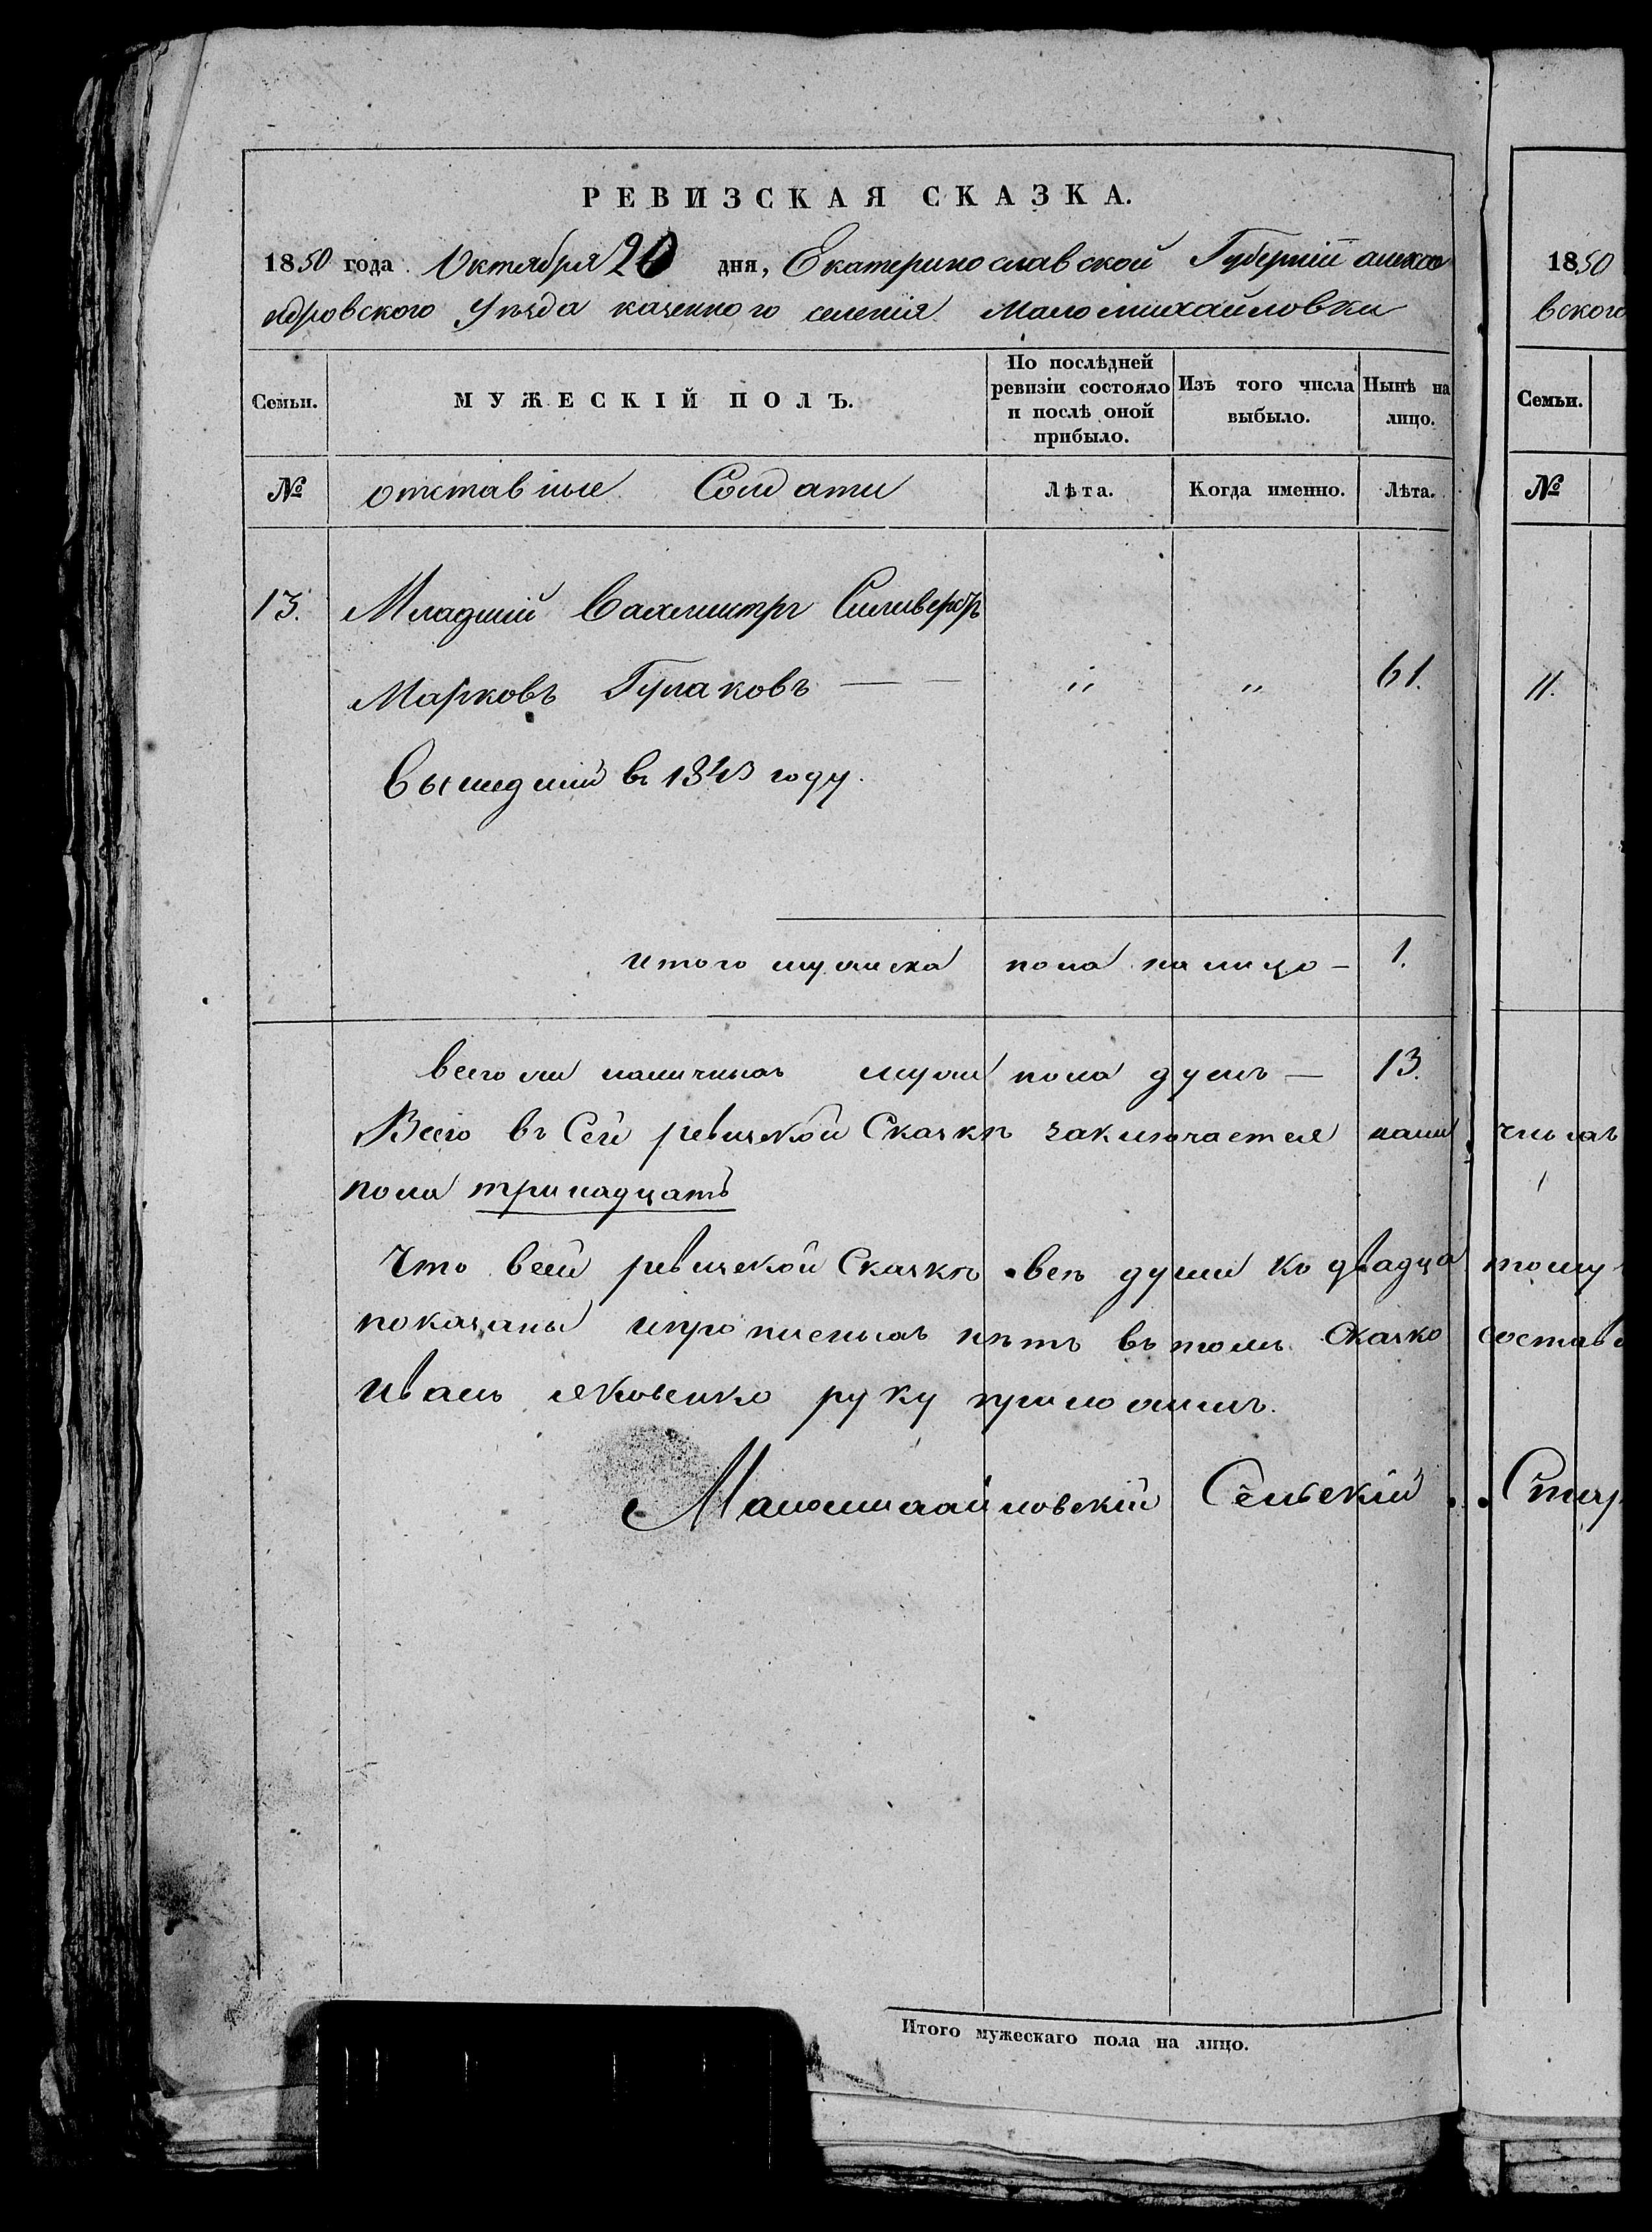 РЕВИЗСКАЯ СКАЗКА.
1850 года Октября 20 дня, Екатеринославской Губерніи алекса
ндровского Уезда казенного селенія Маломихайловки
Семьи. МУЖЕСКІЙ ПОЛЪ. По послѣдней ревизіи состояло и послѣ оной прибыло. Изъ того числа выбыло. Нынѣ на лицо.
№ отставные Солдати Лѣта. Когда именно. Лѣта.
13. Младшій Вахмистръ Силиверстъ
Марковъ Гулаковъ — — „ „ 61.
Вышедшій въ 1843 году.
итого мужеска пола на лицо – 1.
всего ли наличныхъ муж пола душъ — 13.
Всего въ Сей ревизкой Сказкѣ заключается нали
пола тринадцать
Что всей ревизской Сказкѣ все души ко двадца
показаны ипрописныхъ нѣтъ въ томъ Сказко
Иванъ Яковенко руку приложилъ.
Маломихайловскій Сельскій
Итого мужескаго пола на лицо.
1850
вского
Семьи.
№
11.
чныхъ
тому
состави
Стар